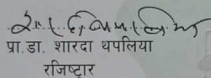 प्रा.डा. शारदा थपलिया
रजिष्टार